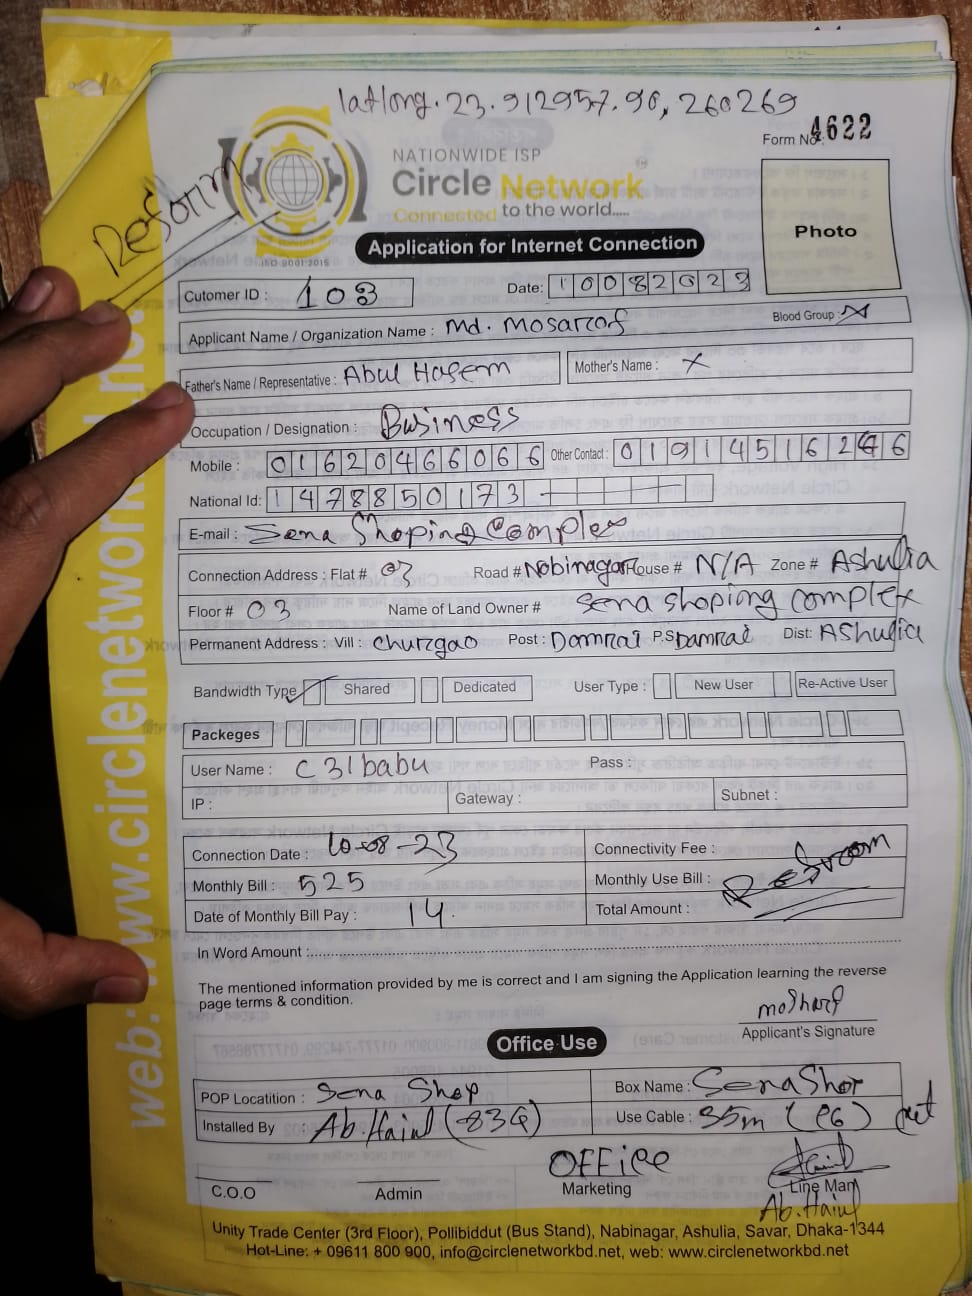 latlong. 23.912957.90, 260269
Form No: 4622
NATIONWIDE ISP
Circle Network
Connected to the world.....
ISO 9001:2015
Reform
Photo
Application for Internet Connection
Cutomer ID : 103 Date: 10082023
Applicant Name / Organization Name : Md. Mosarrof Blood Group : X
Father's Name / Representative : Abul Hasem Mother's Name : X
Occupation / Designation : Business
Mobile : 01620466066 Other Contact : 01914516246
National Id: 1478850173
E-mail : Sena Shoping Complex
Connection Address : Flat # 07 Road # Nobinagar House # N/A Zone # Ashulia
Floor # 03 Name of Land Owner # Sena shoping complex
Permanent Address : Vill : Churgao Post : Damrai P.S Damrai Dist: Ashulia
Bandwidth Type ✓ Shared Dedicated User Type : New User Re-Active User
Packeges
User Name : C31babu Pass :
IP : Gateway : Subnet :
Connection Date : 10-08-23 Connectivity Fee :
Monthly Bill : 525 Monthly Use Bill :
Date of Monthly Bill Pay : 14. Total Amount :
In Word Amount :
The mentioned information provided by me is correct and I am signing the Application learning the reverse
page terms & condition.
Applicant's Signature
Office Use
POP Locatition : Sena Shop Box Name : Sena Shop
Installed By : Ab. Haiul (834) Use Cable : 35m (C6)
OFFice
C.O.O Admin Marketing Line Man
Ab. Haiul
Unity Trade Center (3rd Floor), Pollibiddut (Bus Stand), Nabinagar, Ashulia, Savar, Dhaka-1344
Hot-Line: + 09611 800 900, info@circlenetworkbd.net, web: www.circlenetworkbd.net
web: www.circlenetwork